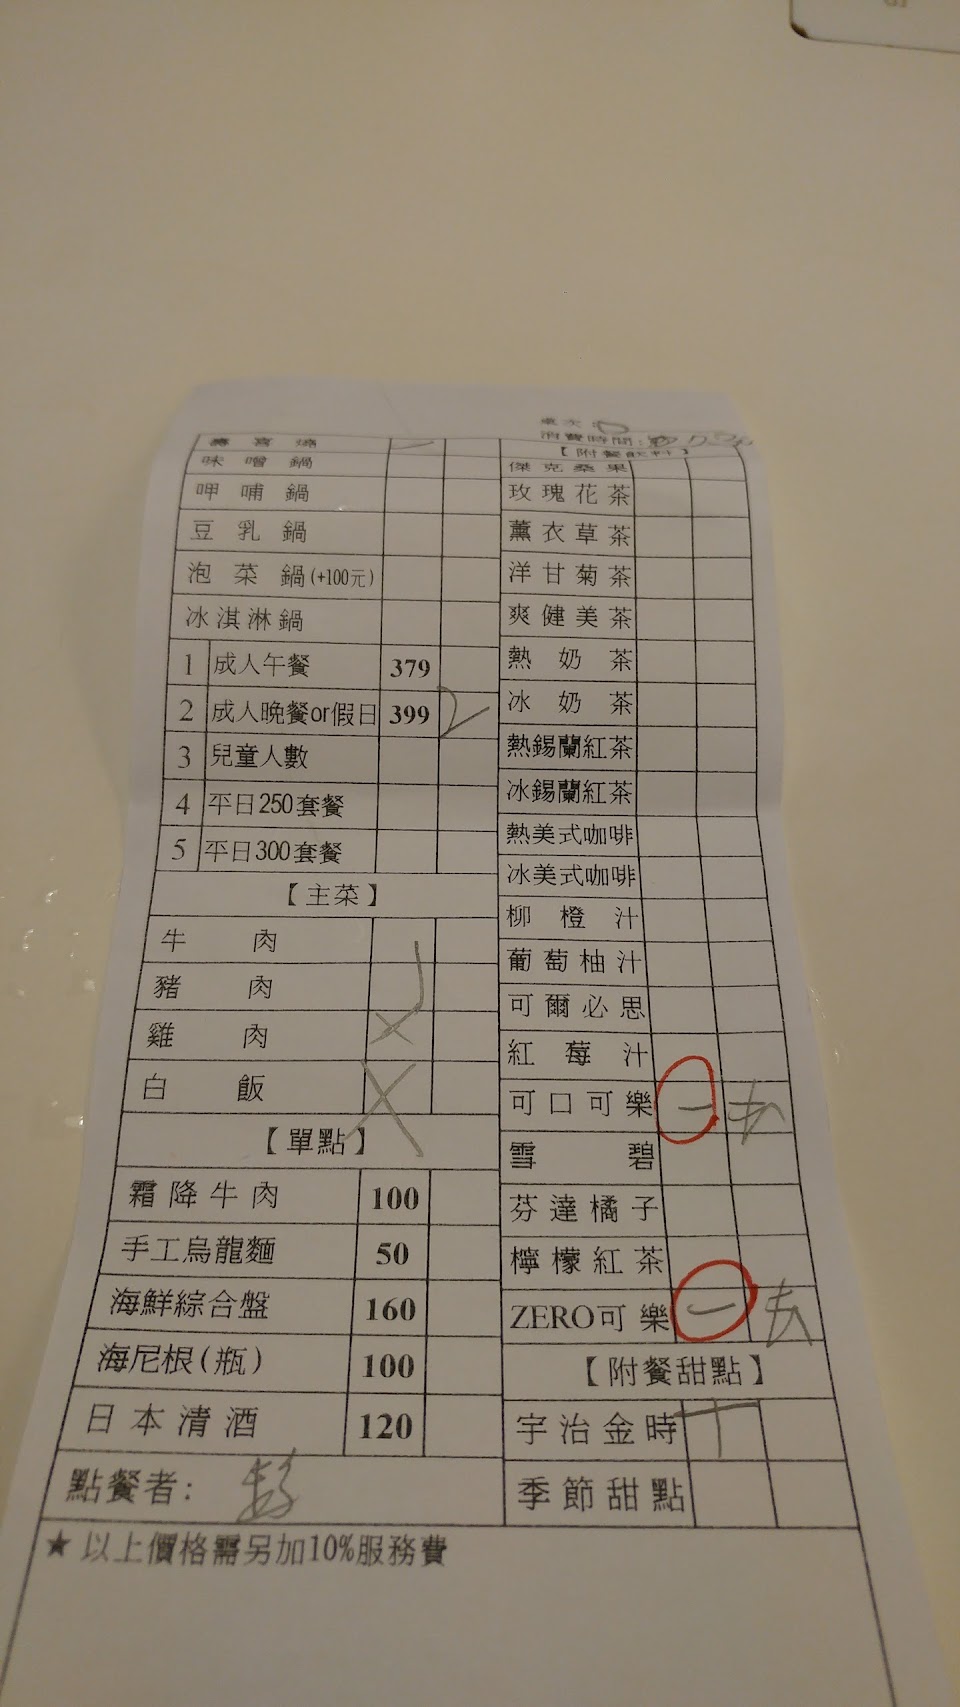 桌次:
消費時間:
壽喜燒
味噌鍋
呷哺鍋
豆乳鍋
泡菜鍋(+100元)
冰淇淋鍋
1 成人午餐 379
2 成人晚餐or假日 399 2
3 兒童人數
4 平日250套餐
5 平日300套餐
【主菜】
牛肉
豬肉
雞肉
白飯
【單點】
霜降牛肉 100
手工烏龍麵 50
海鮮綜合盤 160
海尼根(瓶) 100
日本清酒 120
點餐者:
【附餐飲料】
傑克桑果
玫瑰花茶
薰衣草茶
洋甘菊茶
爽健美茶
熱奶茶
冰奶茶
熱錫蘭紅茶
冰錫蘭紅茶
熱美式咖啡
冰美式咖啡
柳橙汁
葡萄柚汁
可爾必思
紅莓汁
可口可樂 一 去
雪碧
芬達橘子
檸檬紅茶
ZERO可樂 一 去
【附餐甜點】
宇治金時
季節甜點
★以上價格需另加10%服務費